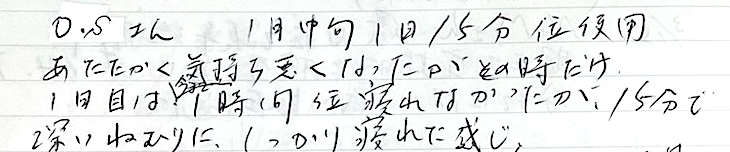 O.Sさん 1月中旬1日15分位使用
あたたかく気持ち悪くなったがその時だけ
1日目は1時間位寝れなかったが、15分で
深いねむりに、しっかり寝れた感じ、